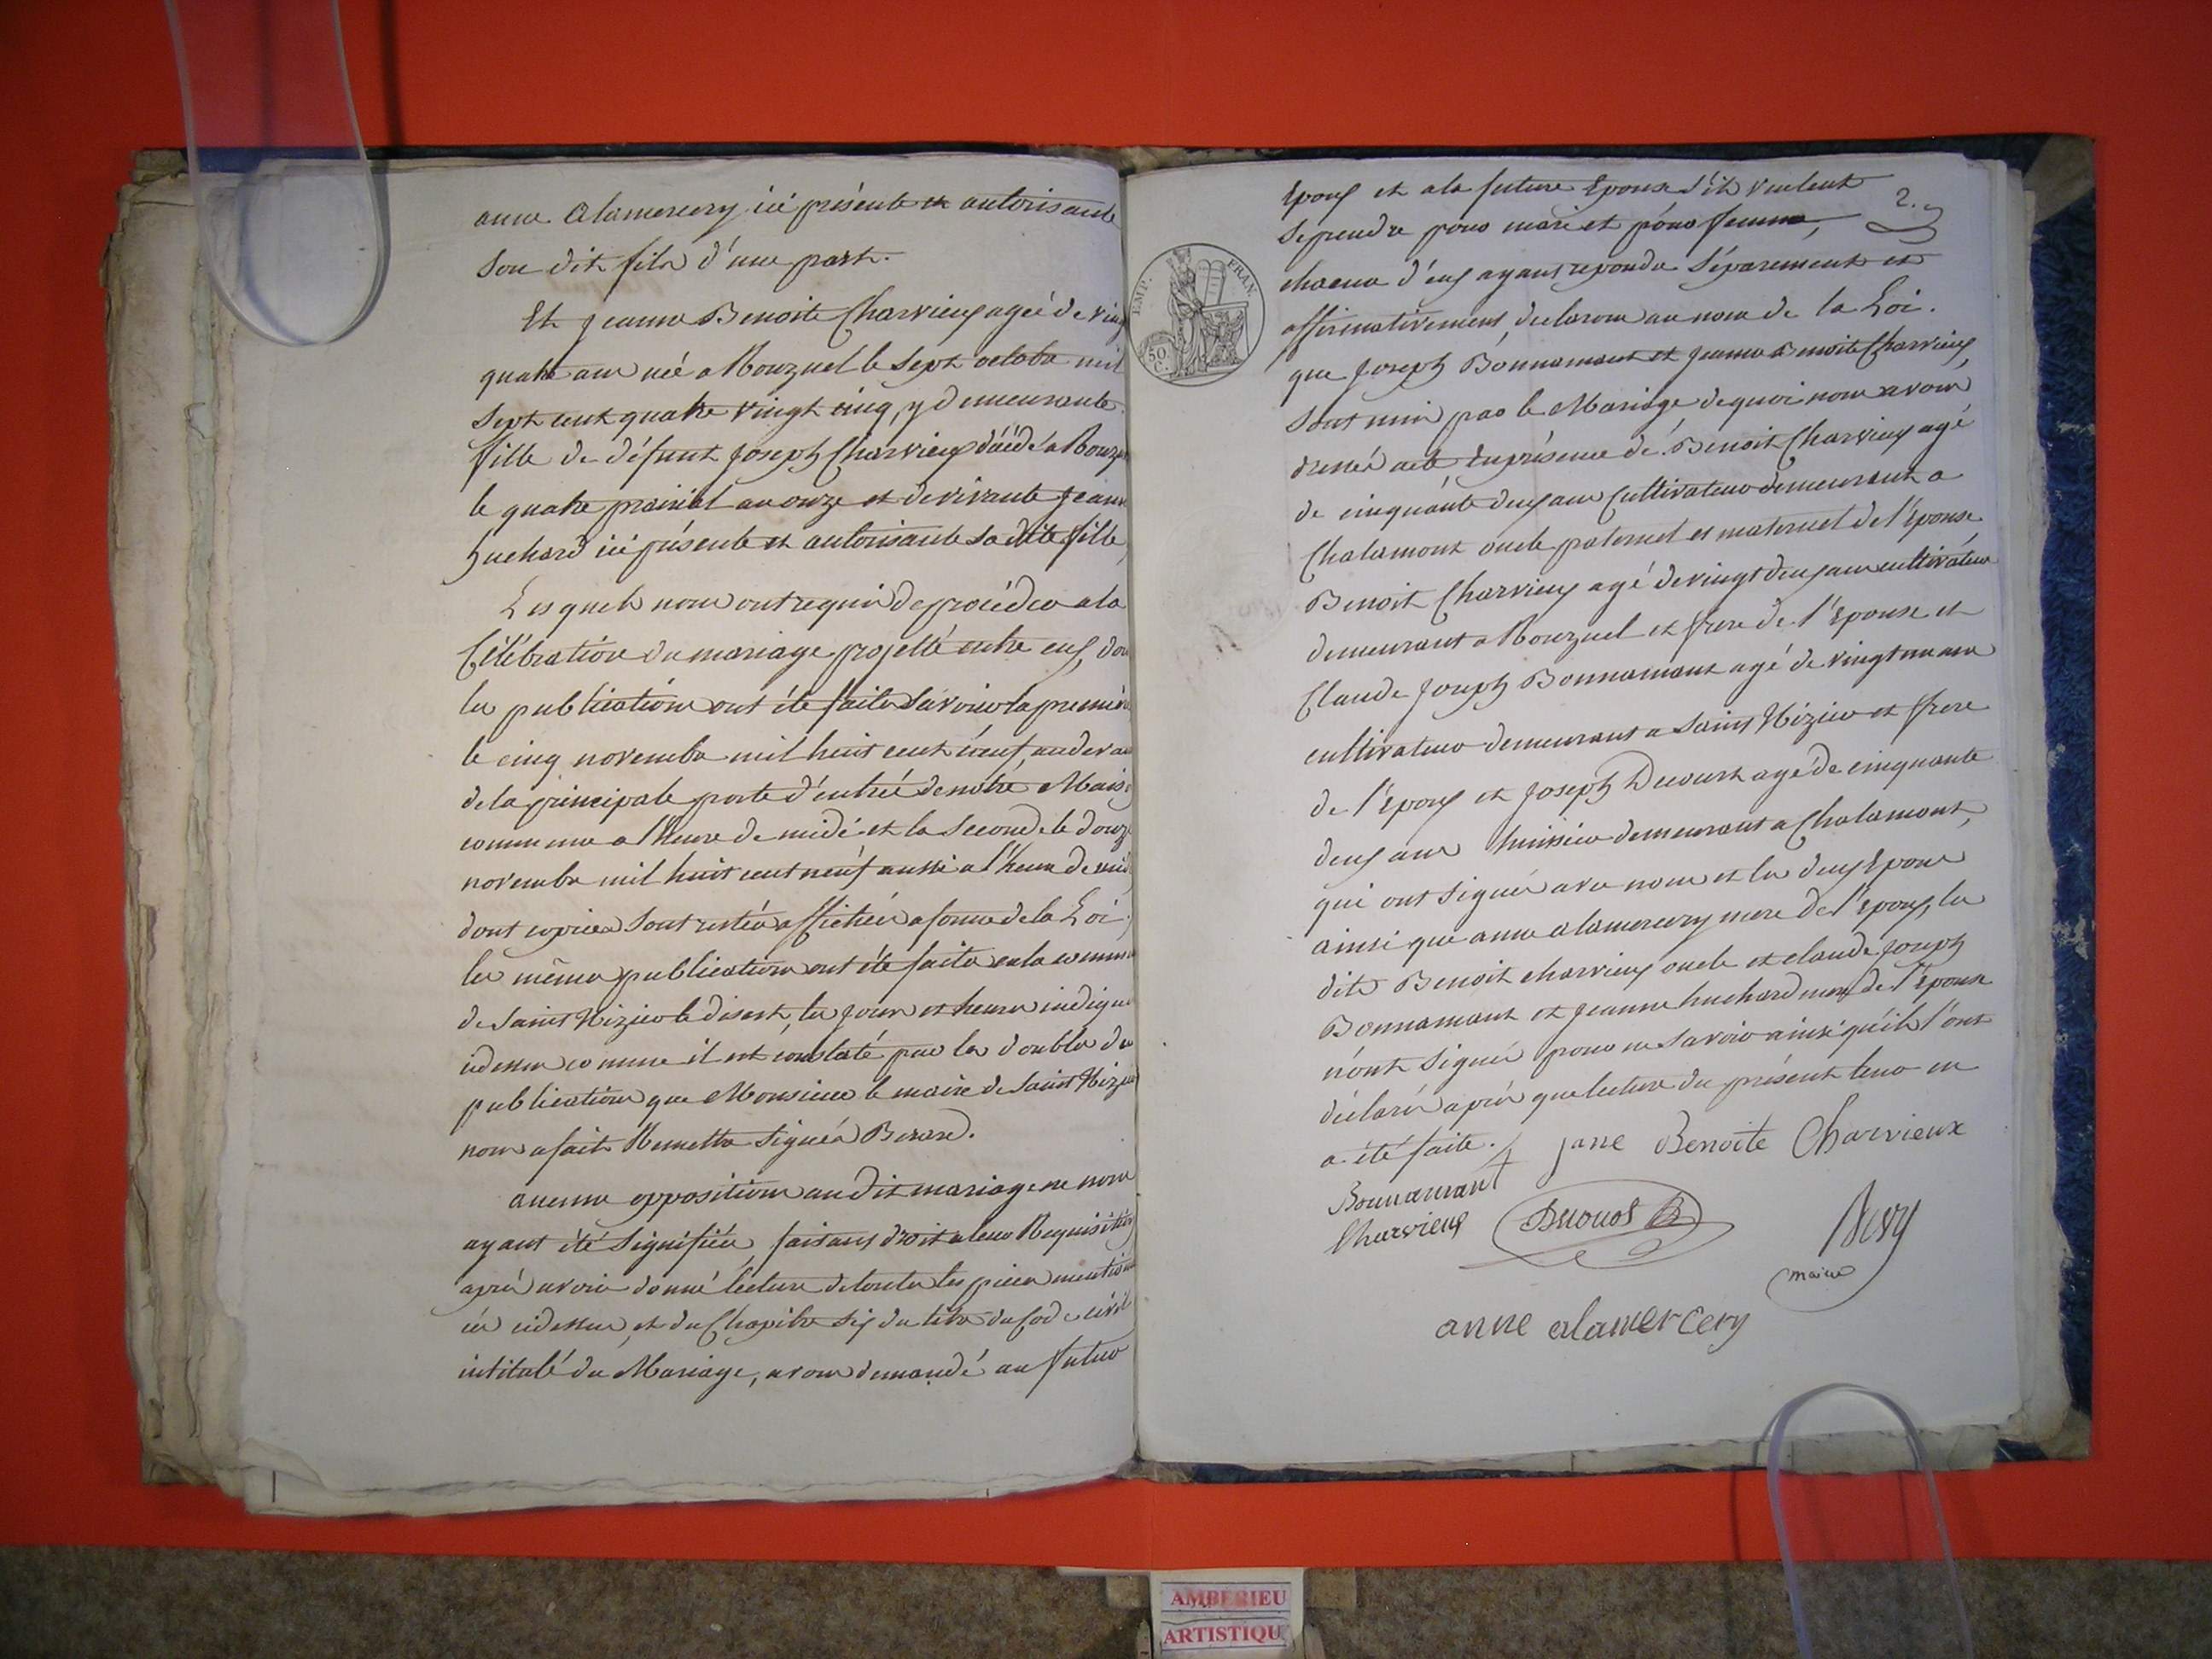 anne alamercery ici présente et autorisante
Son dit fils d'une part.
Et jeanne Benoite Charvieux agée de ving
quatre ans née a Ronzuel le Sept octobre mil
Sept cent quatre vingt cinq, y demeurante
fille de défunt joseph Charvieux décédé a Ronzu
le quatre prairial an onze et de vivante jeanne
huchard ici présente et autorisante sa dite fille,
Lesquels nous ont requis de procéder a la
Célébration du mariage projetté entre eux, dont
les publications ont été faites Savoir la première
le cinq novembre mil huit cent neuf, au devant
de la principale porte d'entrée de notre Maison
commune a l'heure de midi et la Seconde le douze
novembre mil huit cent neuf aussi a l'heure de midi
dont copies Sont restées affichées a forme de la Loi,
les mêmes publications ont été faites en la commune
de Saint Nizier le désert, les jours et heures indiqués
cidessus comme il est constaté par les doubles des
publications que Monsieur le maire de Saint Nizier
nous a fait Remettre Signés Berard.
aucune opposition au dit mariage ne nous
ayant été Signifiée, faisant droit a leur Requisition
après avoir donné lecture de toutes les pièces mention
ées cidessus, et du Chapitre Six du titre du Code civil
intitulé du Mariage, avons demandé au futur
2.
Epoux et a la future Epouse S'ils veulent
Se prendre pour mari et pour femme,
chacun d'eux ayant repondu Séparement et
affirmativement, declarons au nom de la Loi.
que joseph Bonnamant et jeanne Benoite Charvieux,
Sont unis par le Mariage, dequoi nous avons
dressé acte En présence de Benoit Charvieux agé
de cinquante deux ans Cultivateur demeurant a
Chalamont oncle paternel et maternel de l'épouse,
Benoit Charvieux agé de vingt deux ans cultivateur
demeurant a Ronzuel et frere de l'épouse et
Claude joseph Bonnamant agé de vingt un ans
cultivateur demeurant a Saint Nizier et frere
de l'époux et joseph Ducurt agé de cinquante
deux ans huissier demeurant a Chalamont,
qui ont Signés avec nous et les deux Epoux
ainsi que anne alamercery mere de l'époux, les
dits Benoit charvieux oncle et claude joseph
Bonnamant et jeanne huchard mere de l'épouse
n'ont Signés pour ne Savoir ainsi qu'ils l'ont
déclarés après que lecture du présent leur en
a été faite. jane Benoite Charvieux
Bonnamant
Charvieux
maire
anne alamercery
EMP. FRAN.
50 C.
AMBERIEU
ARTISTIQU